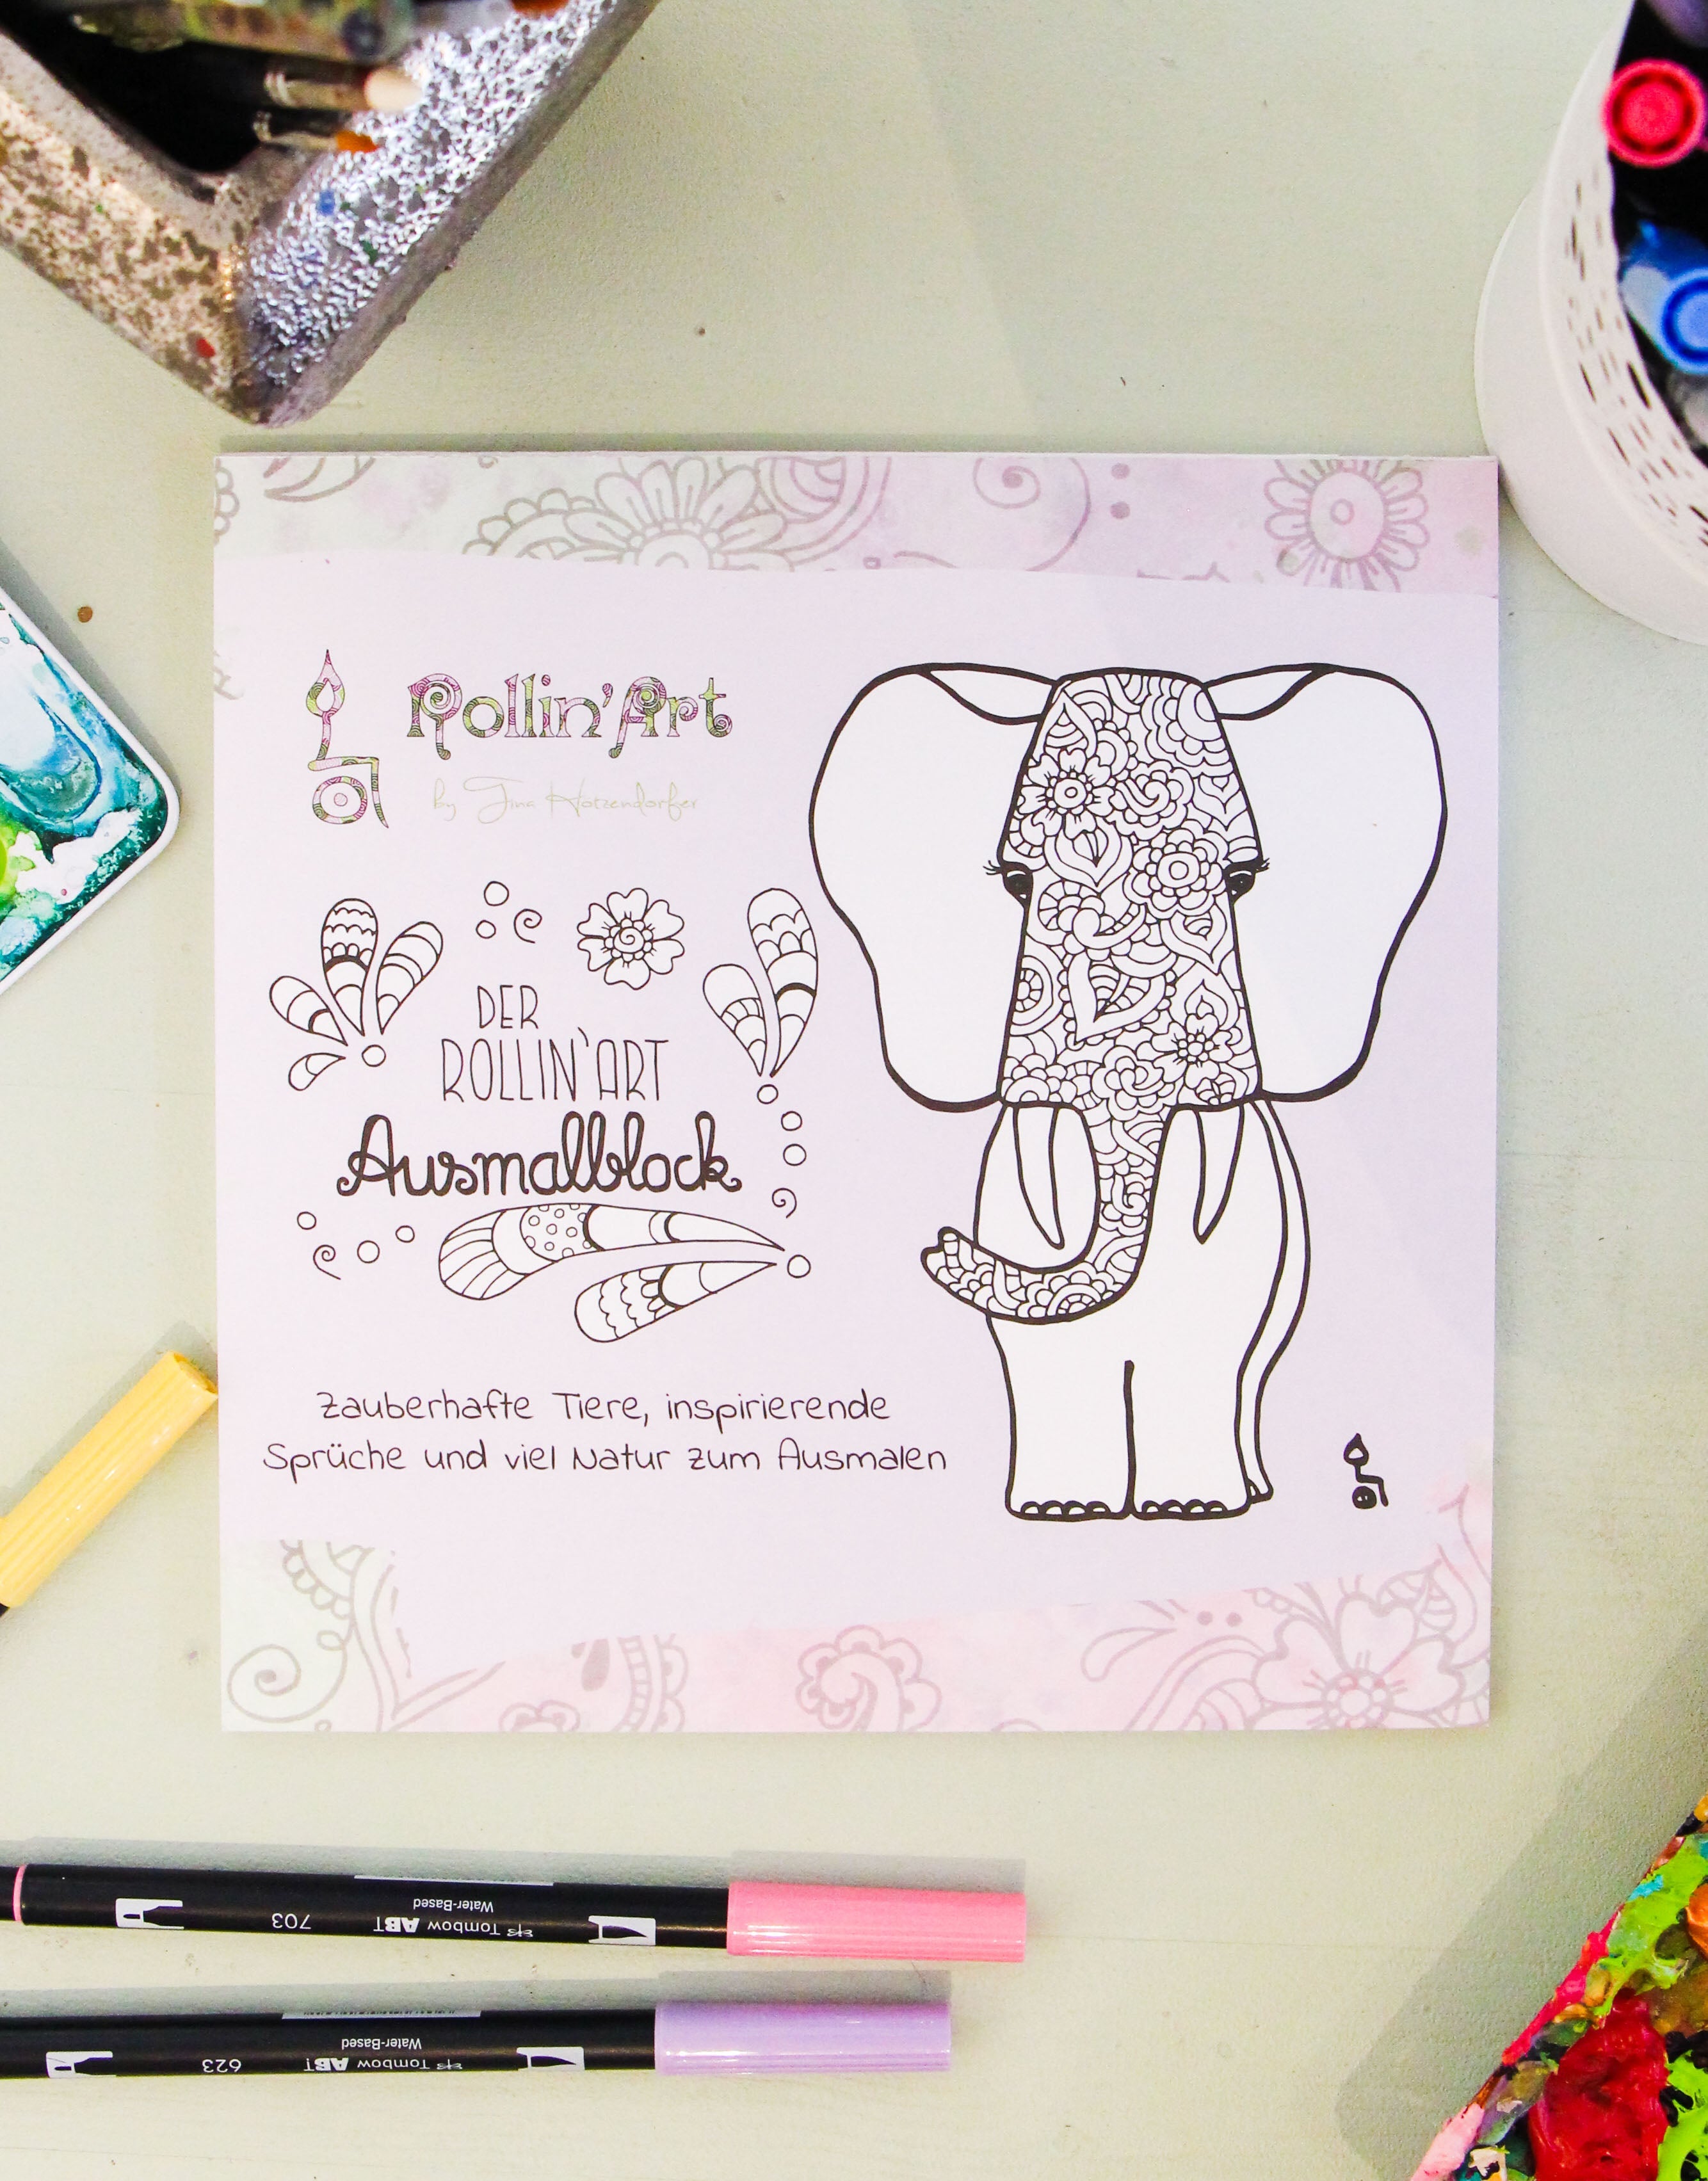 Rollin'Art
by Tina Hotzendorfer
DER
ROLLIN'ART
Ausmalblock
Zauberhafte Tiere, inspirierende
Sprüche und viel Natur zum Ausmalen
703
Tombow ABT
Water-Based
623
Tombow ABT
Water-Based